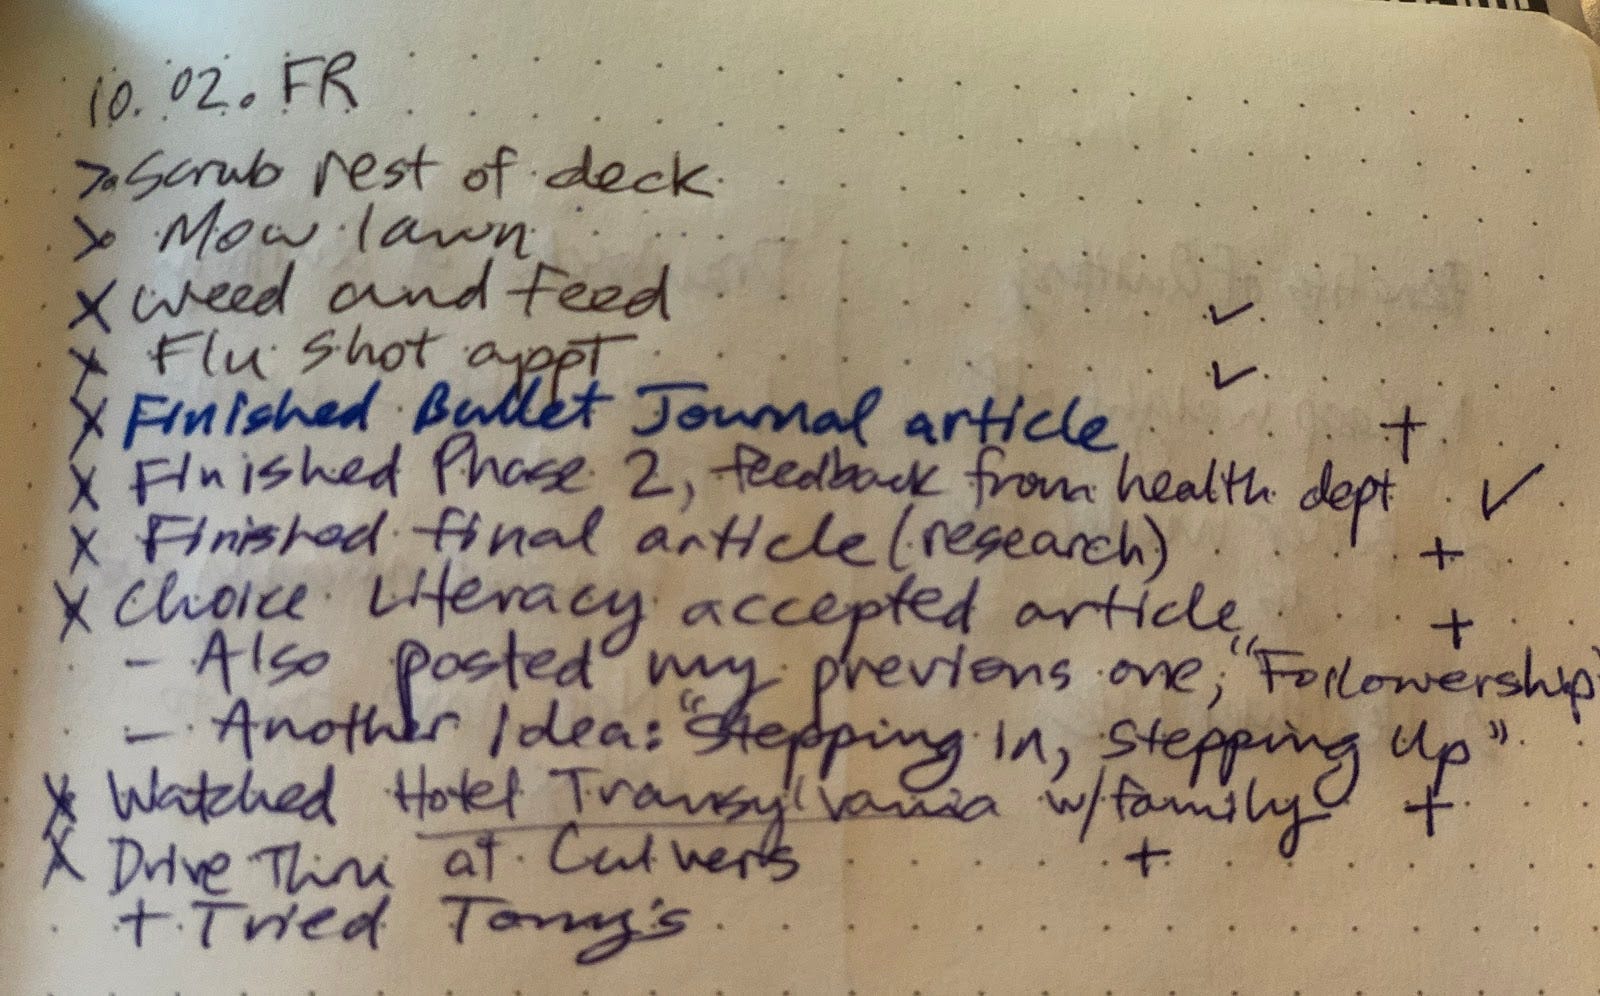 10.02.FR
> Scrub rest of deck
> Mow lawn
X Weed and feed ✓
X Flu shot appt ✓
X Finished Bullet Journal article +
X Finished Phase 2, feedback from health dept ✓
X Finished final article (research) +
X Choice Literacy accepted article +
- Also posted my previous one, "Followership"
- Another idea: "Stepping In, Stepping Up"
X Watched Hotel Transylvania w/family +
X Drive Thru at Culvers +
+ Tried Tony's